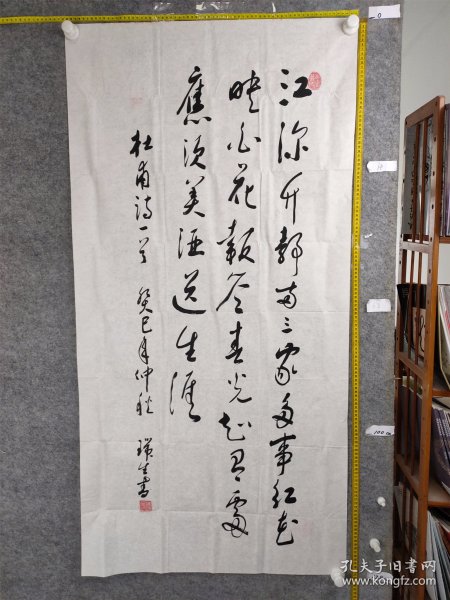 江深竹靜两三家多事红花
映白花報答春光知有處
應須美酒送生涯
杜甫詩一首 癸巳年仲秋 瑞生書
0
100cm
孔夫子旧书网
www.kongfz.com